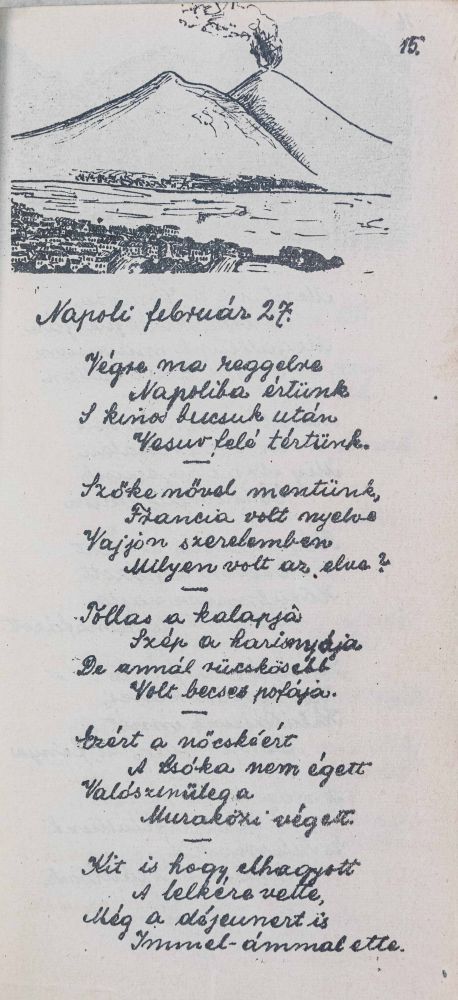 15.
Napoli február 27.
Végre ma reggelre
Napoliba értünk
S kinos bucsuk után
Vesuv felé tértünk.
Szőke nővel mentünk,
Francia volt nyelve
Vajjon szerelemben
Milyen volt az elve?
Tollas a kalapja
Szép a harisnyája
De annál rücskösebb
Volt becses pofája.
Ezért a nőcskéért
A Csóka nem égett
Valószinüleg a
Muraközi végett.
Kit is hogy elhagyott
A lelkére vette,
Még a déjeunert is
Immel-ámmal ette.